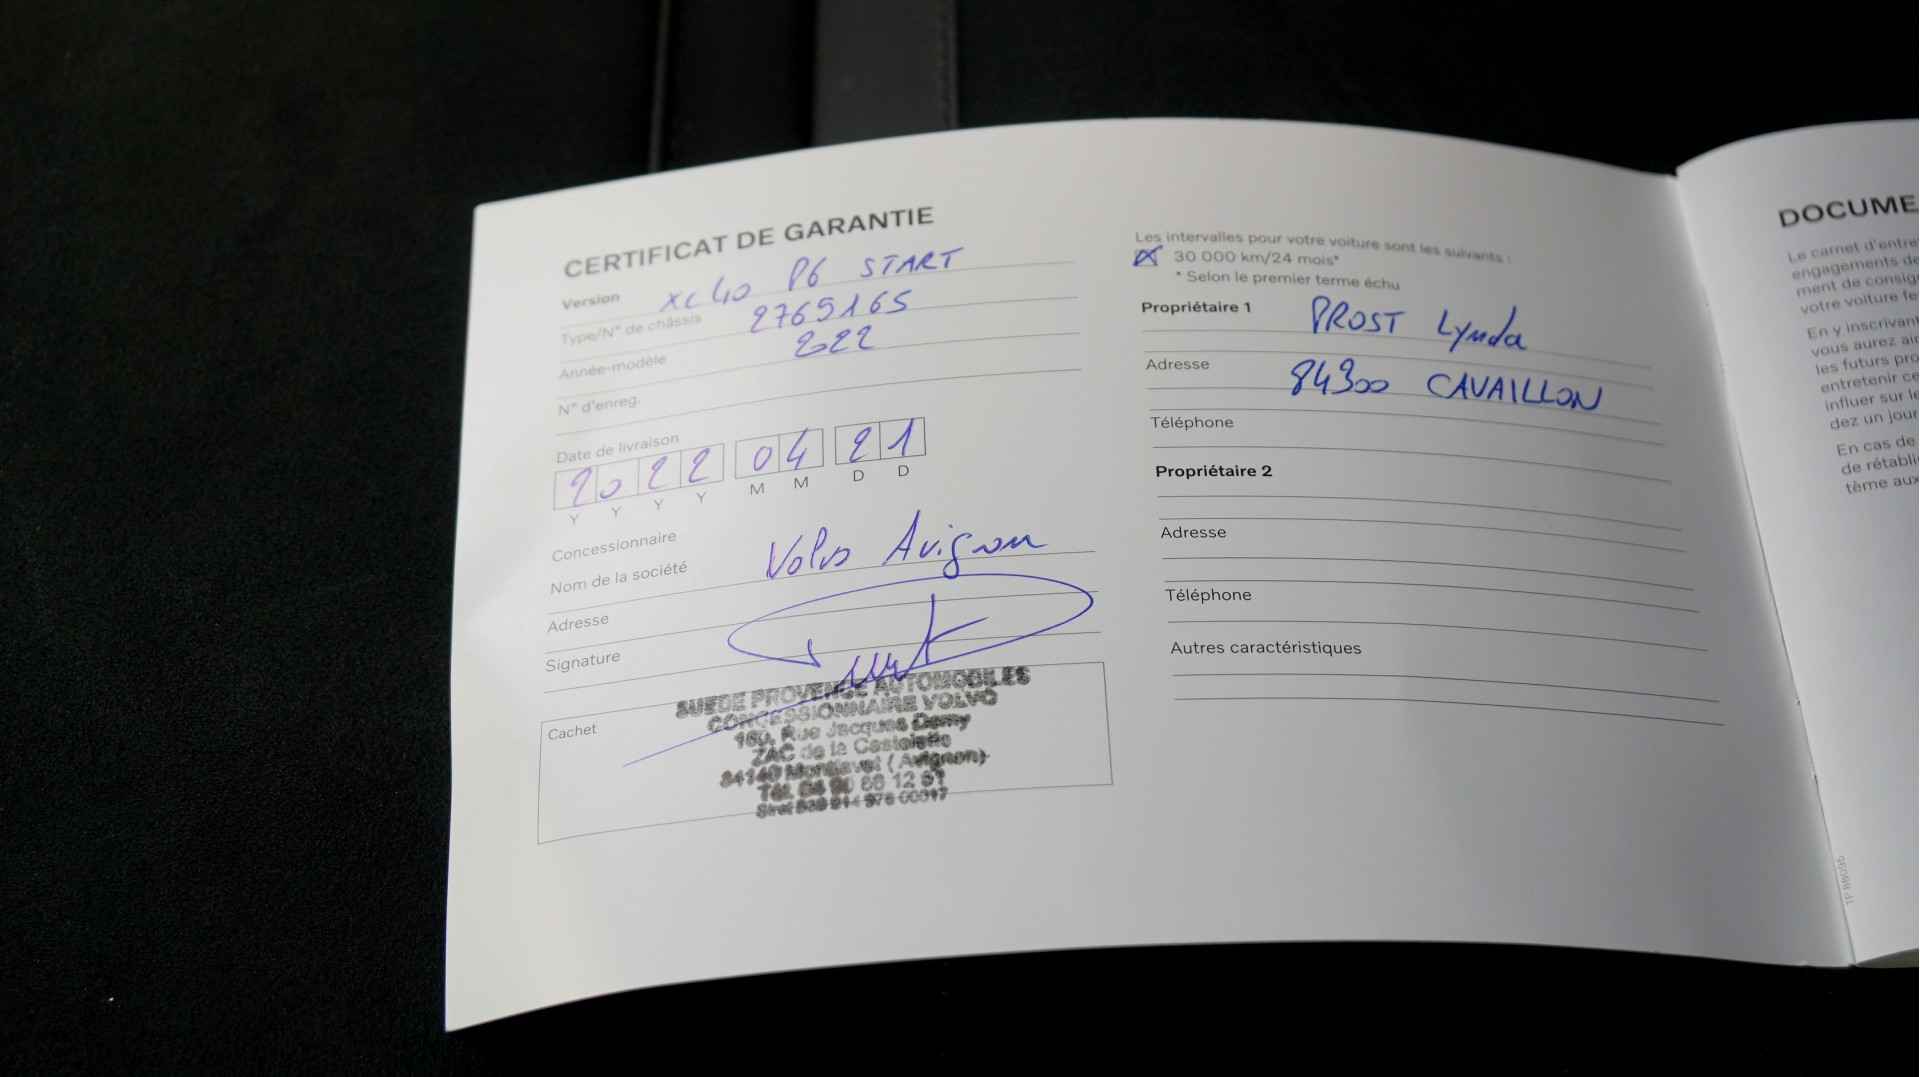 CERTIFICAT DE GARANTIE
Version XC40 P6 START
Type/N° de châssis 2769165
Année-modèle 2022
N° d'enreg.
Date de livraison
2022 04 21
Y Y Y Y M M D D
Concessionnaire
Nom de la société Volvo Avignon
Adresse
Signature
Cachet
SUEDE PROVENCE AUTOMOBILES
CONCESSIONNAIRE VOLVO
160, Rue Jacques Demy
ZAC de la Castelette
84140 Montfavet (Avignon)
Tél. 04 90 88 12 61
Siret 976 00017
Les intervalles pour votre voiture sont les suivants :
30 000 km/24 mois*
* Selon le premier terme échu
Propriétaire 1 PROST Lynda
Adresse 84300 CAVAILLON
Téléphone
Propriétaire 2
Adresse
Téléphone
Autres caractéristiques
DOCUME
Le carnet d'entre
engagements de
ment de consign
votre voiture fe
En y inscrivant
vous aurez aid
les futurs pro
entretenir ce
influer sur le
dez un jour
En cas de
de rétabli
tème aux